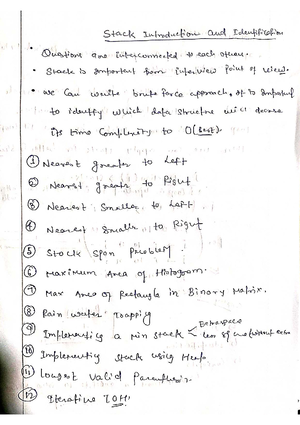 Stack Introduction and Identification
• Questions are interconnected to each other.
• Stack is important from interview point of view.
• we can write brute force approach, it is important
to identify which data structure will decrease
its time complexity to O(best).
① Nearest greater to Left
② Nearst greater to Right
③ Nearest Smaller to Left
④ Nearest Smaller to Right
⑤ Stock Span Problem
⑥ Maximum Area of Histogram.
⑦ Max Area of Rectangle in Binary Matrix.
⑧ Rain water Trapping
⑨ Implementing a min stack < Extraspace
without extra
⑩ Implementing stack using Heap
⑪ Longest Valid Parenthesis.
⑫ Iterative TOH.